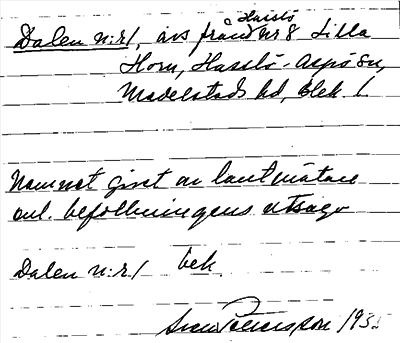 Hasslö
Dalen n:r 1, avs från nr 8 Lilla
Horn, Hasslö-Aspö sn,
Medelstads hd, Blek. l.
Namnet givet av lantmätare
enl. befolkningens utsago
Dalen n:r 1 bek.
Sven Petersson 1935